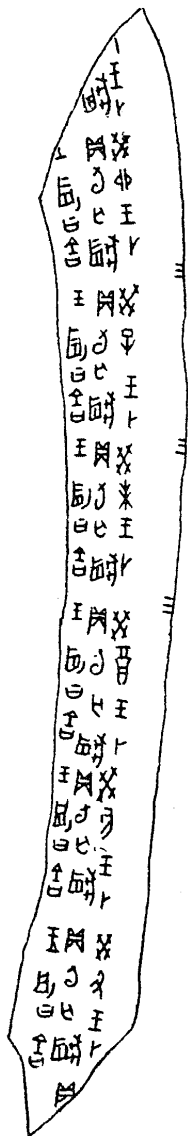 王卜
𡆥
癸卯王卜
貞旬亡𡆥
王占曰吉
癸巳王卜
貞旬亡𡆥
王占曰吉
癸未王卜
貞旬亡𡆥
王占曰吉
癸酉王卜
貞旬亡𡆥
王占曰吉
癸亥王卜
貞旬亡𡆥
王占曰吉
癸丑王卜
貞旬亡𡆥
王占曰吉
貞